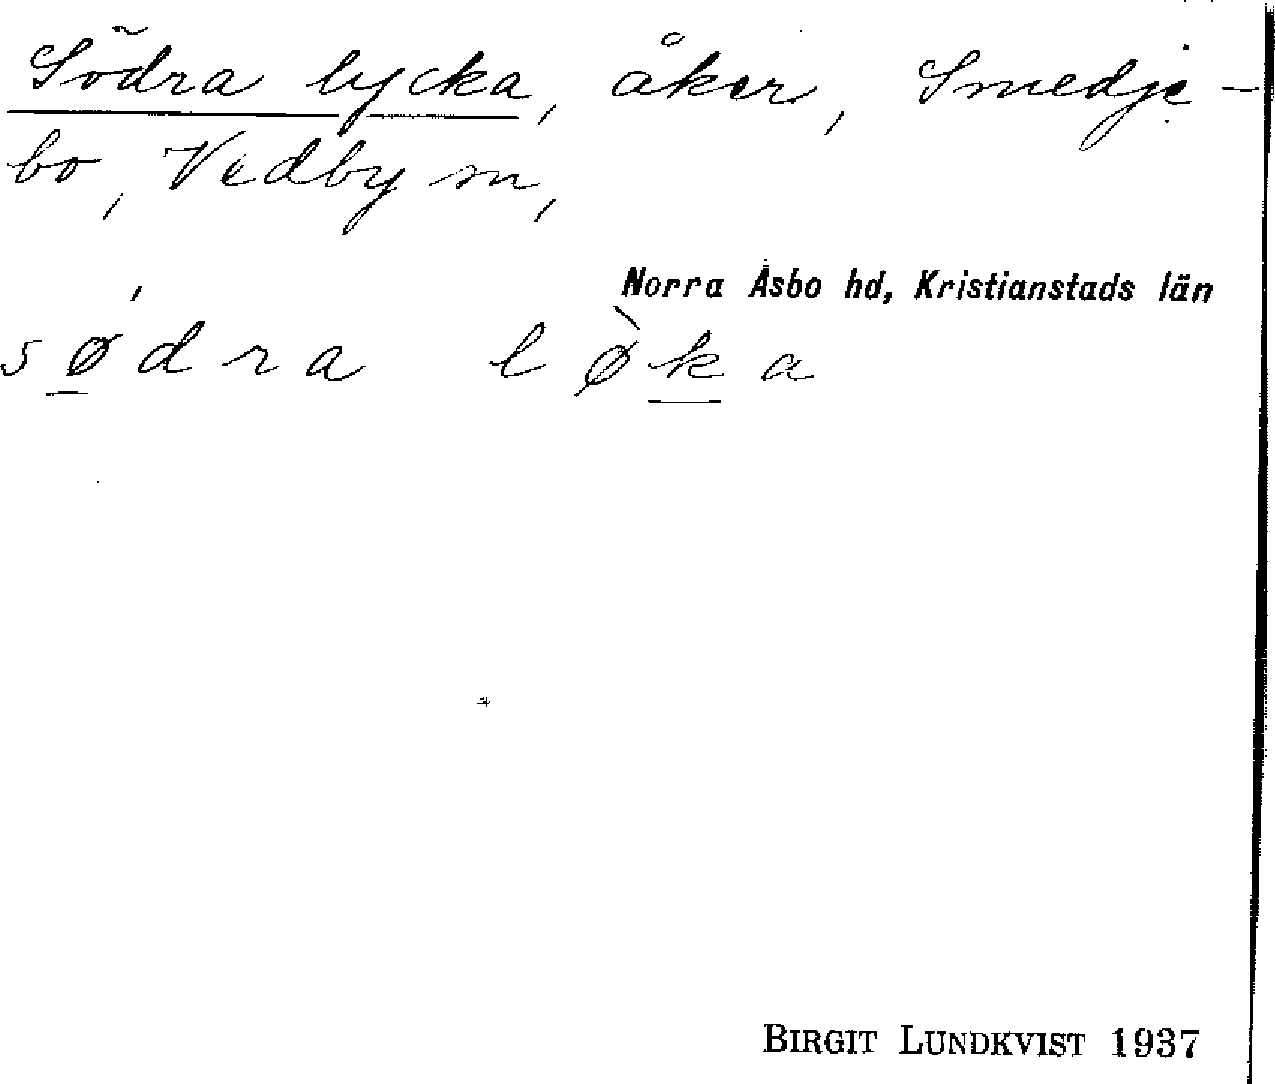 Södra lycka, åker, Smedje-
bo, Vedby sn,
Norra Åsbo hd, Kristianstads län
sǿ̲dra lø̀k̲a
BIRGIT LUNDKVIST 1937